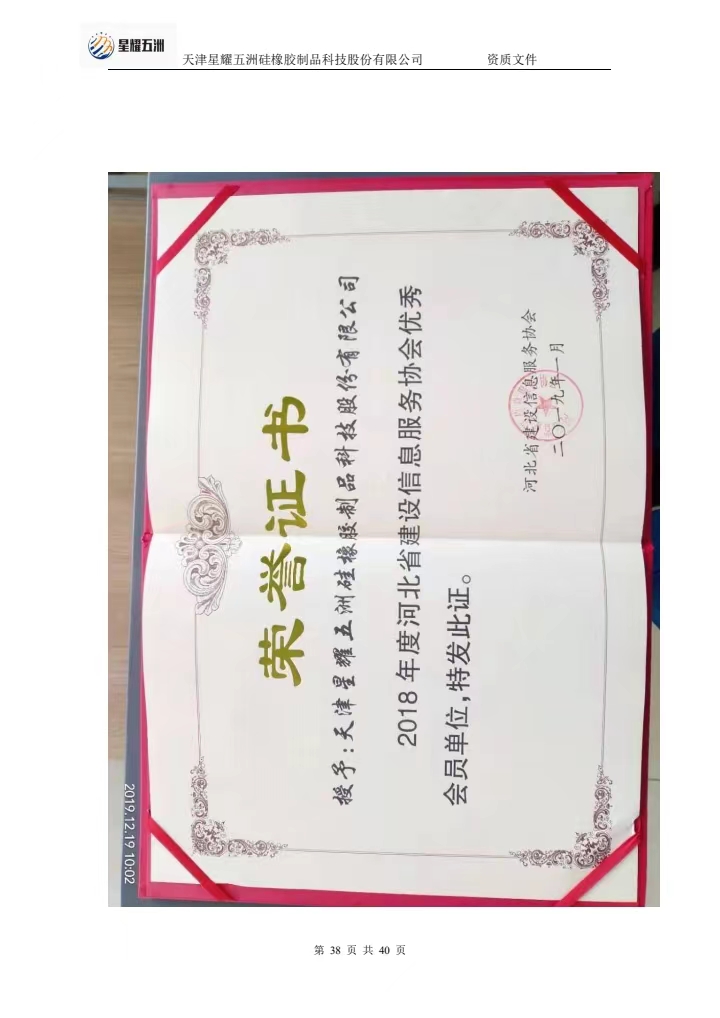 星耀五洲
天津星耀五洲硅橡胶制品科技股份有限公司 资质文件
荣誉证书
授予：天津星耀五洲硅橡胶制品科技股份有限公司
2018年度河北省建设信息服务协会优秀
会员单位，特发此证。
河北省建设信息服务协会
二〇一九年一月
2019.12.19 10:02
第 38 页 共 40 页